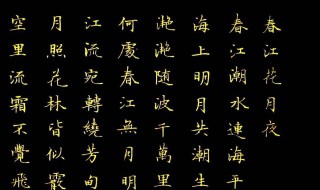 春江花月夜
春江潮水連海平
海上明月共潮生
滟滟随波千萬里
何處春江無月明
江流宛轉繞芳甸
月照花林皆似霰
空里流霜不覺飛